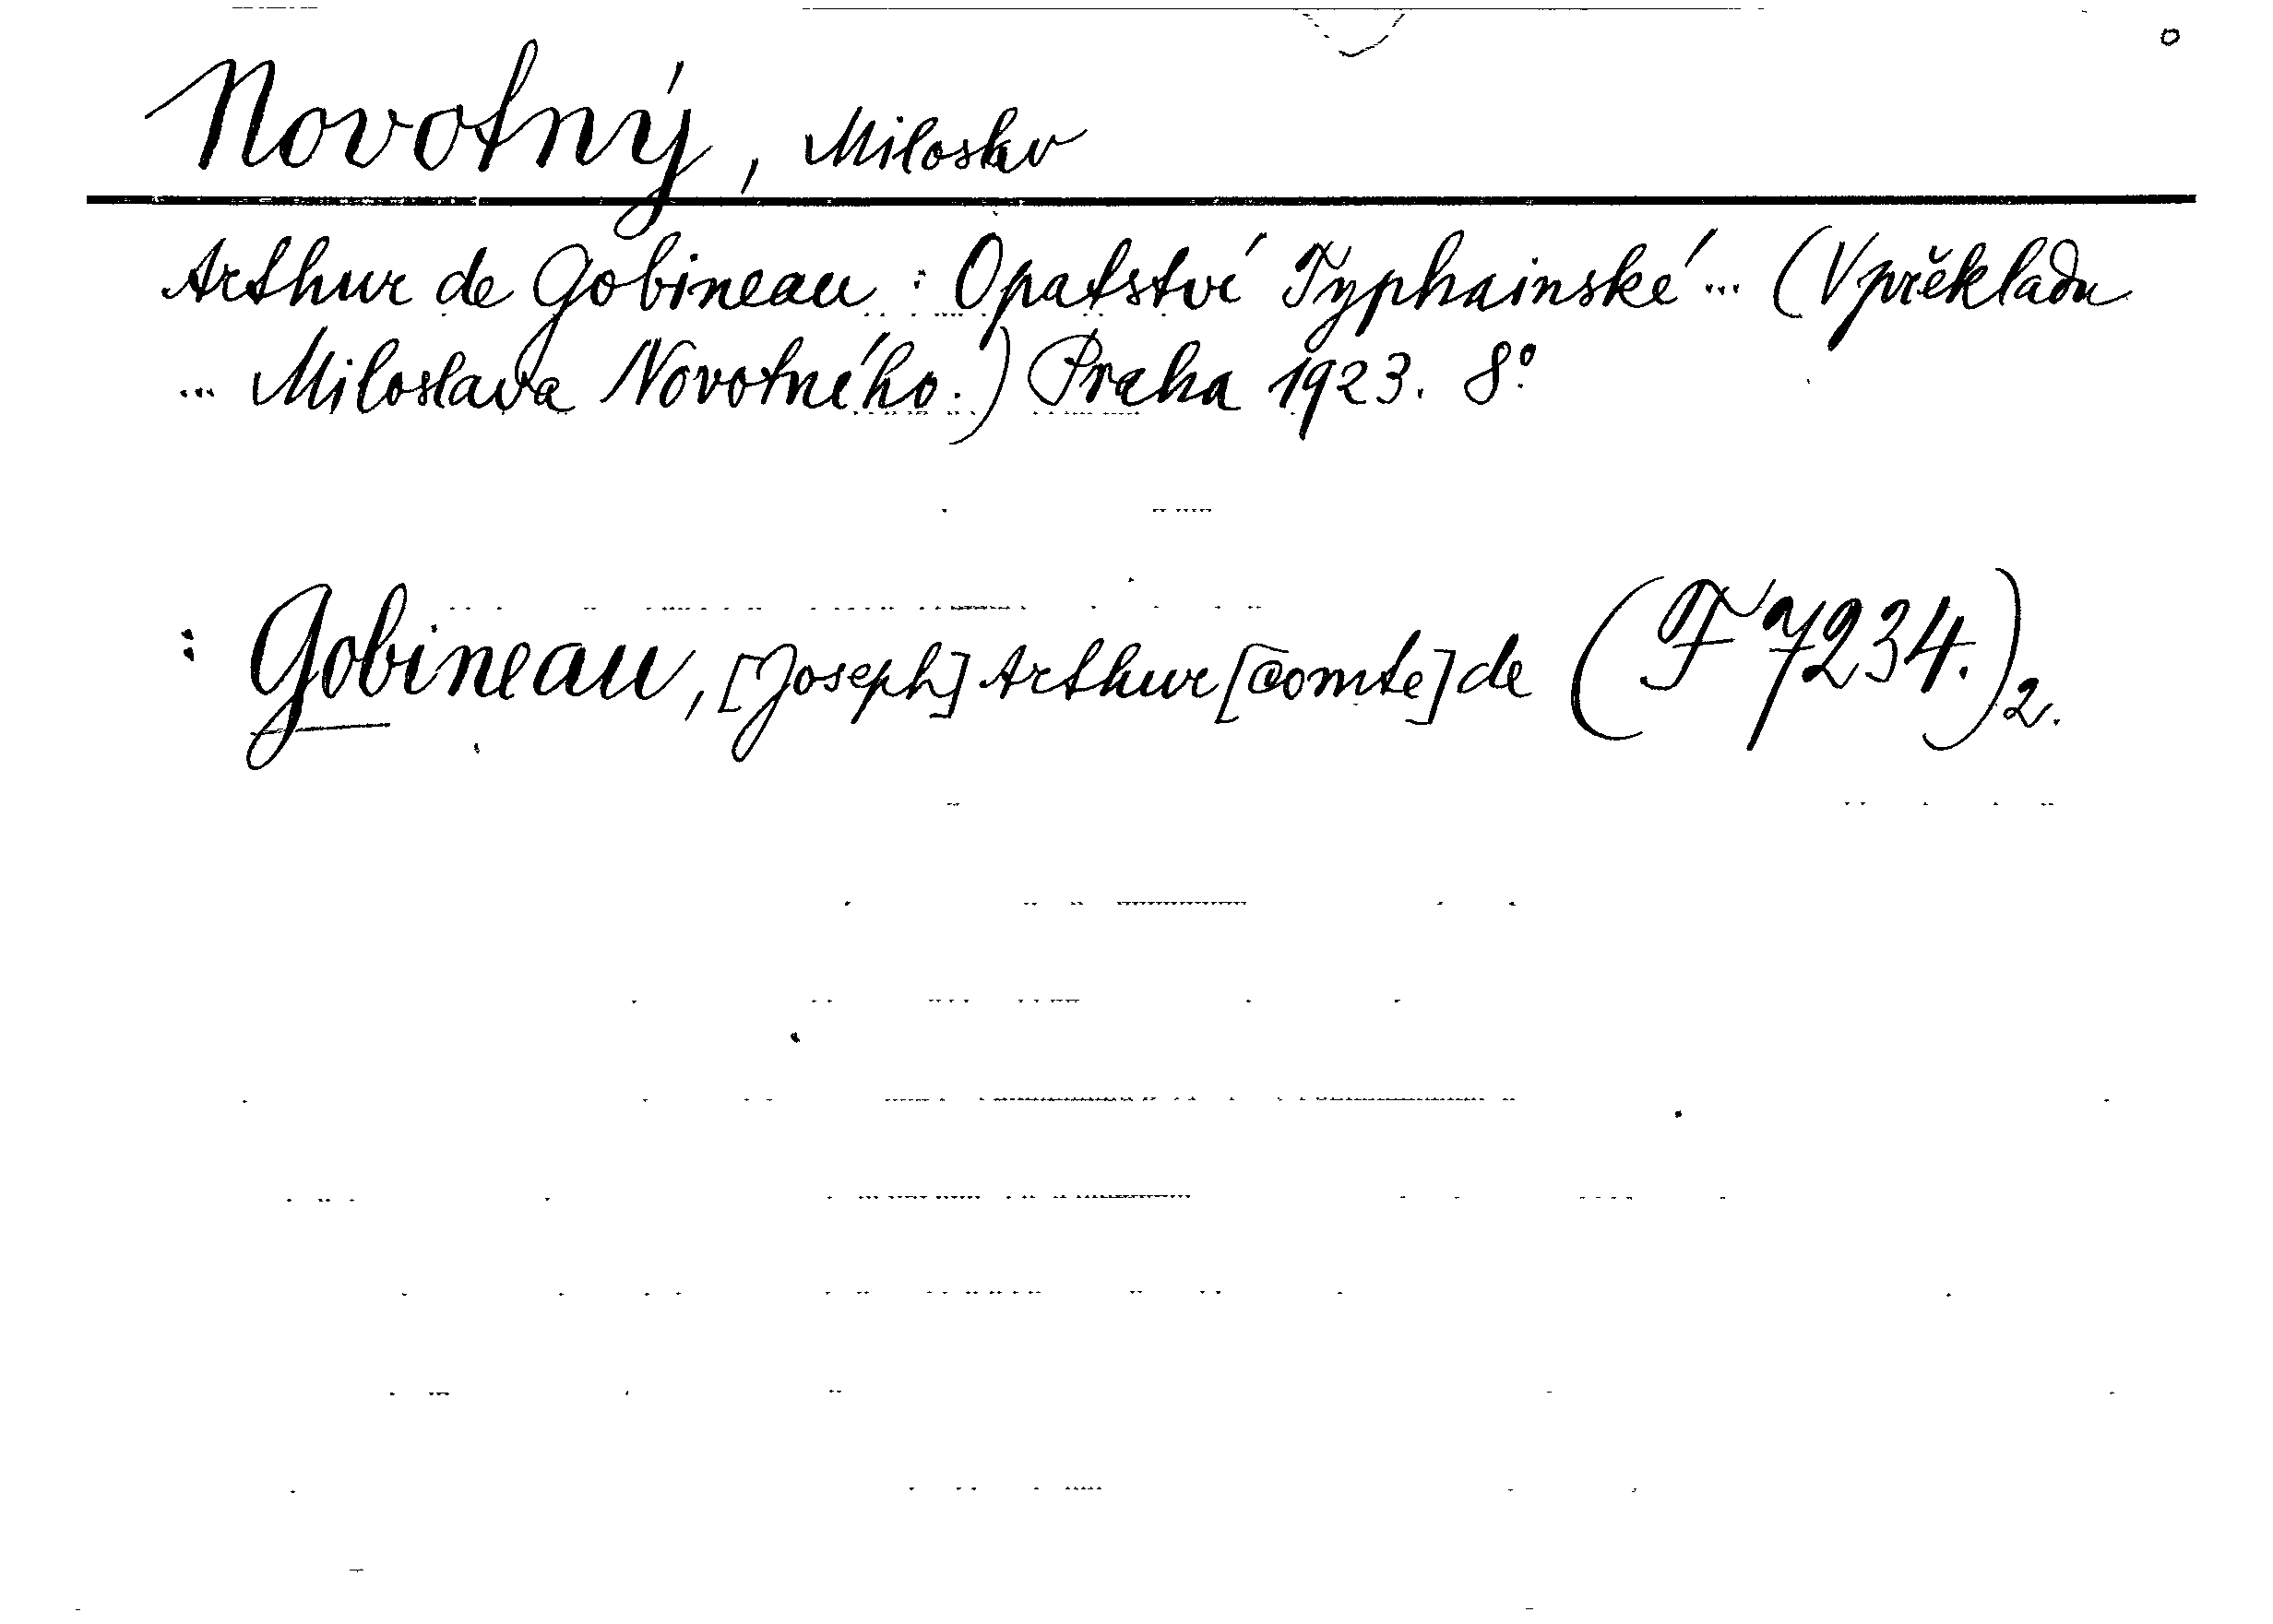 Novotný, Miloslav
Arthur de Gobineau : Opatství Typhainské ... (V překladu
... Miloslava Novotného.) Praha 1923. 8°.
: Gobineau, [Joseph] Arthur [comte] de (F 7234.)2.